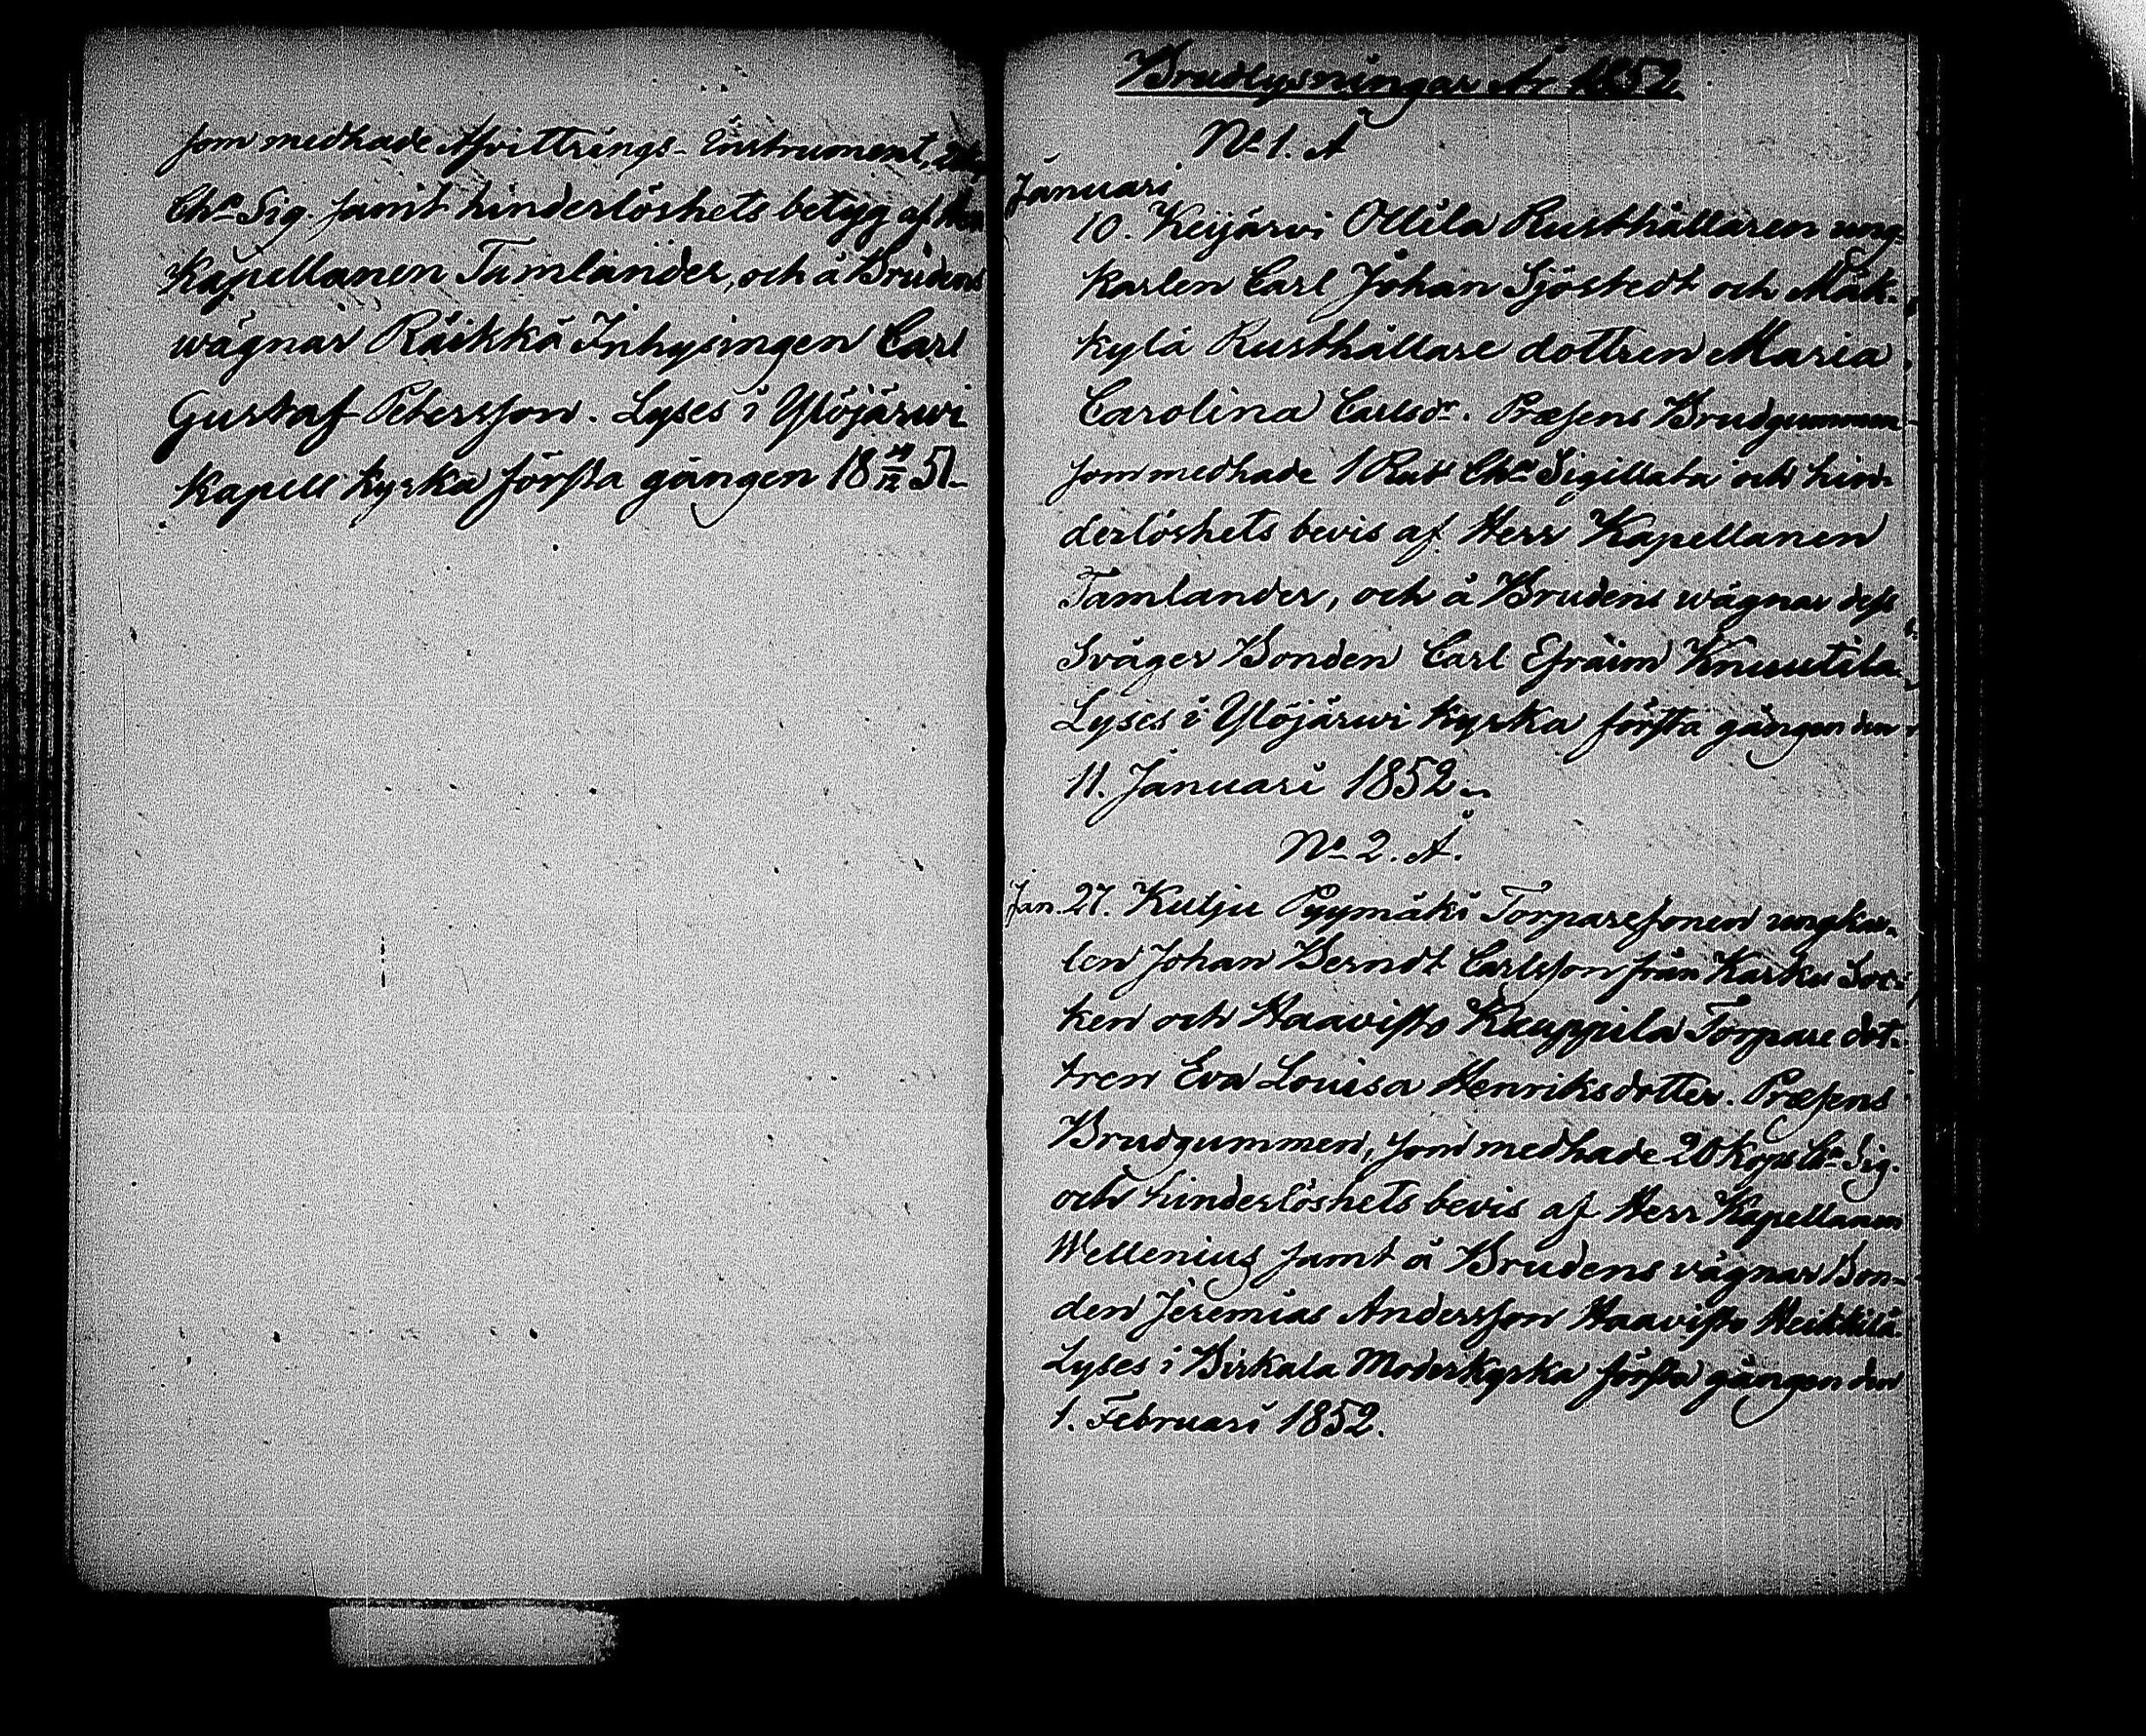 som medhade Afvittrings-Instrument,
Cha Sig. samt hinderlöshets betyg af
Kapellanen Tamlander, och å Brudens
wägnar Räikkä Inhysingen Carl
Gustaf Petersson. Lyses i Ylöjärwi
Kapell kyrka första gången 18 /12 51.
Brudlysningar År 1852.
No 1. A
Januari
10. Keijärvi Ollila Rusthållaren ung-
karlen Carl Johan Sjöstedt och Mäk-
kylä Rusthållare dottren Maria
Carolina Carlsdr. Præsens Brudgummen
som medhade 1 Rub Cha Sigillata och hin-
derlöshets bevis af Herr Kapellanen
Tamlander, och å Brudens wägnar dess
Svåger Bonden Carl Efraim Knuutila.
Lyses i Ylöjärwi kyrka första gången den
11. Januari 1852.
No 2. A.
Jan. 27. Kulju Pyymäki Torparesonen ungkar-
len Johan Berndt Carlsson från Karku Soc-
ken och Haavisto Kauppila Torpare dot-
tren Eva Louisa Henriksdotter. Præsens
Brudgummen, som medhade 20 Kops Cha Sig.
och hinderlöshets bevis af Herr Kapellanen
Wellenius samt å Brudens vägnar Bon-
den Jeremias Andersson Haavisto Heikkilä.
Lyses i Birkala Moderkyrka första gången den
1. Februari 1852.